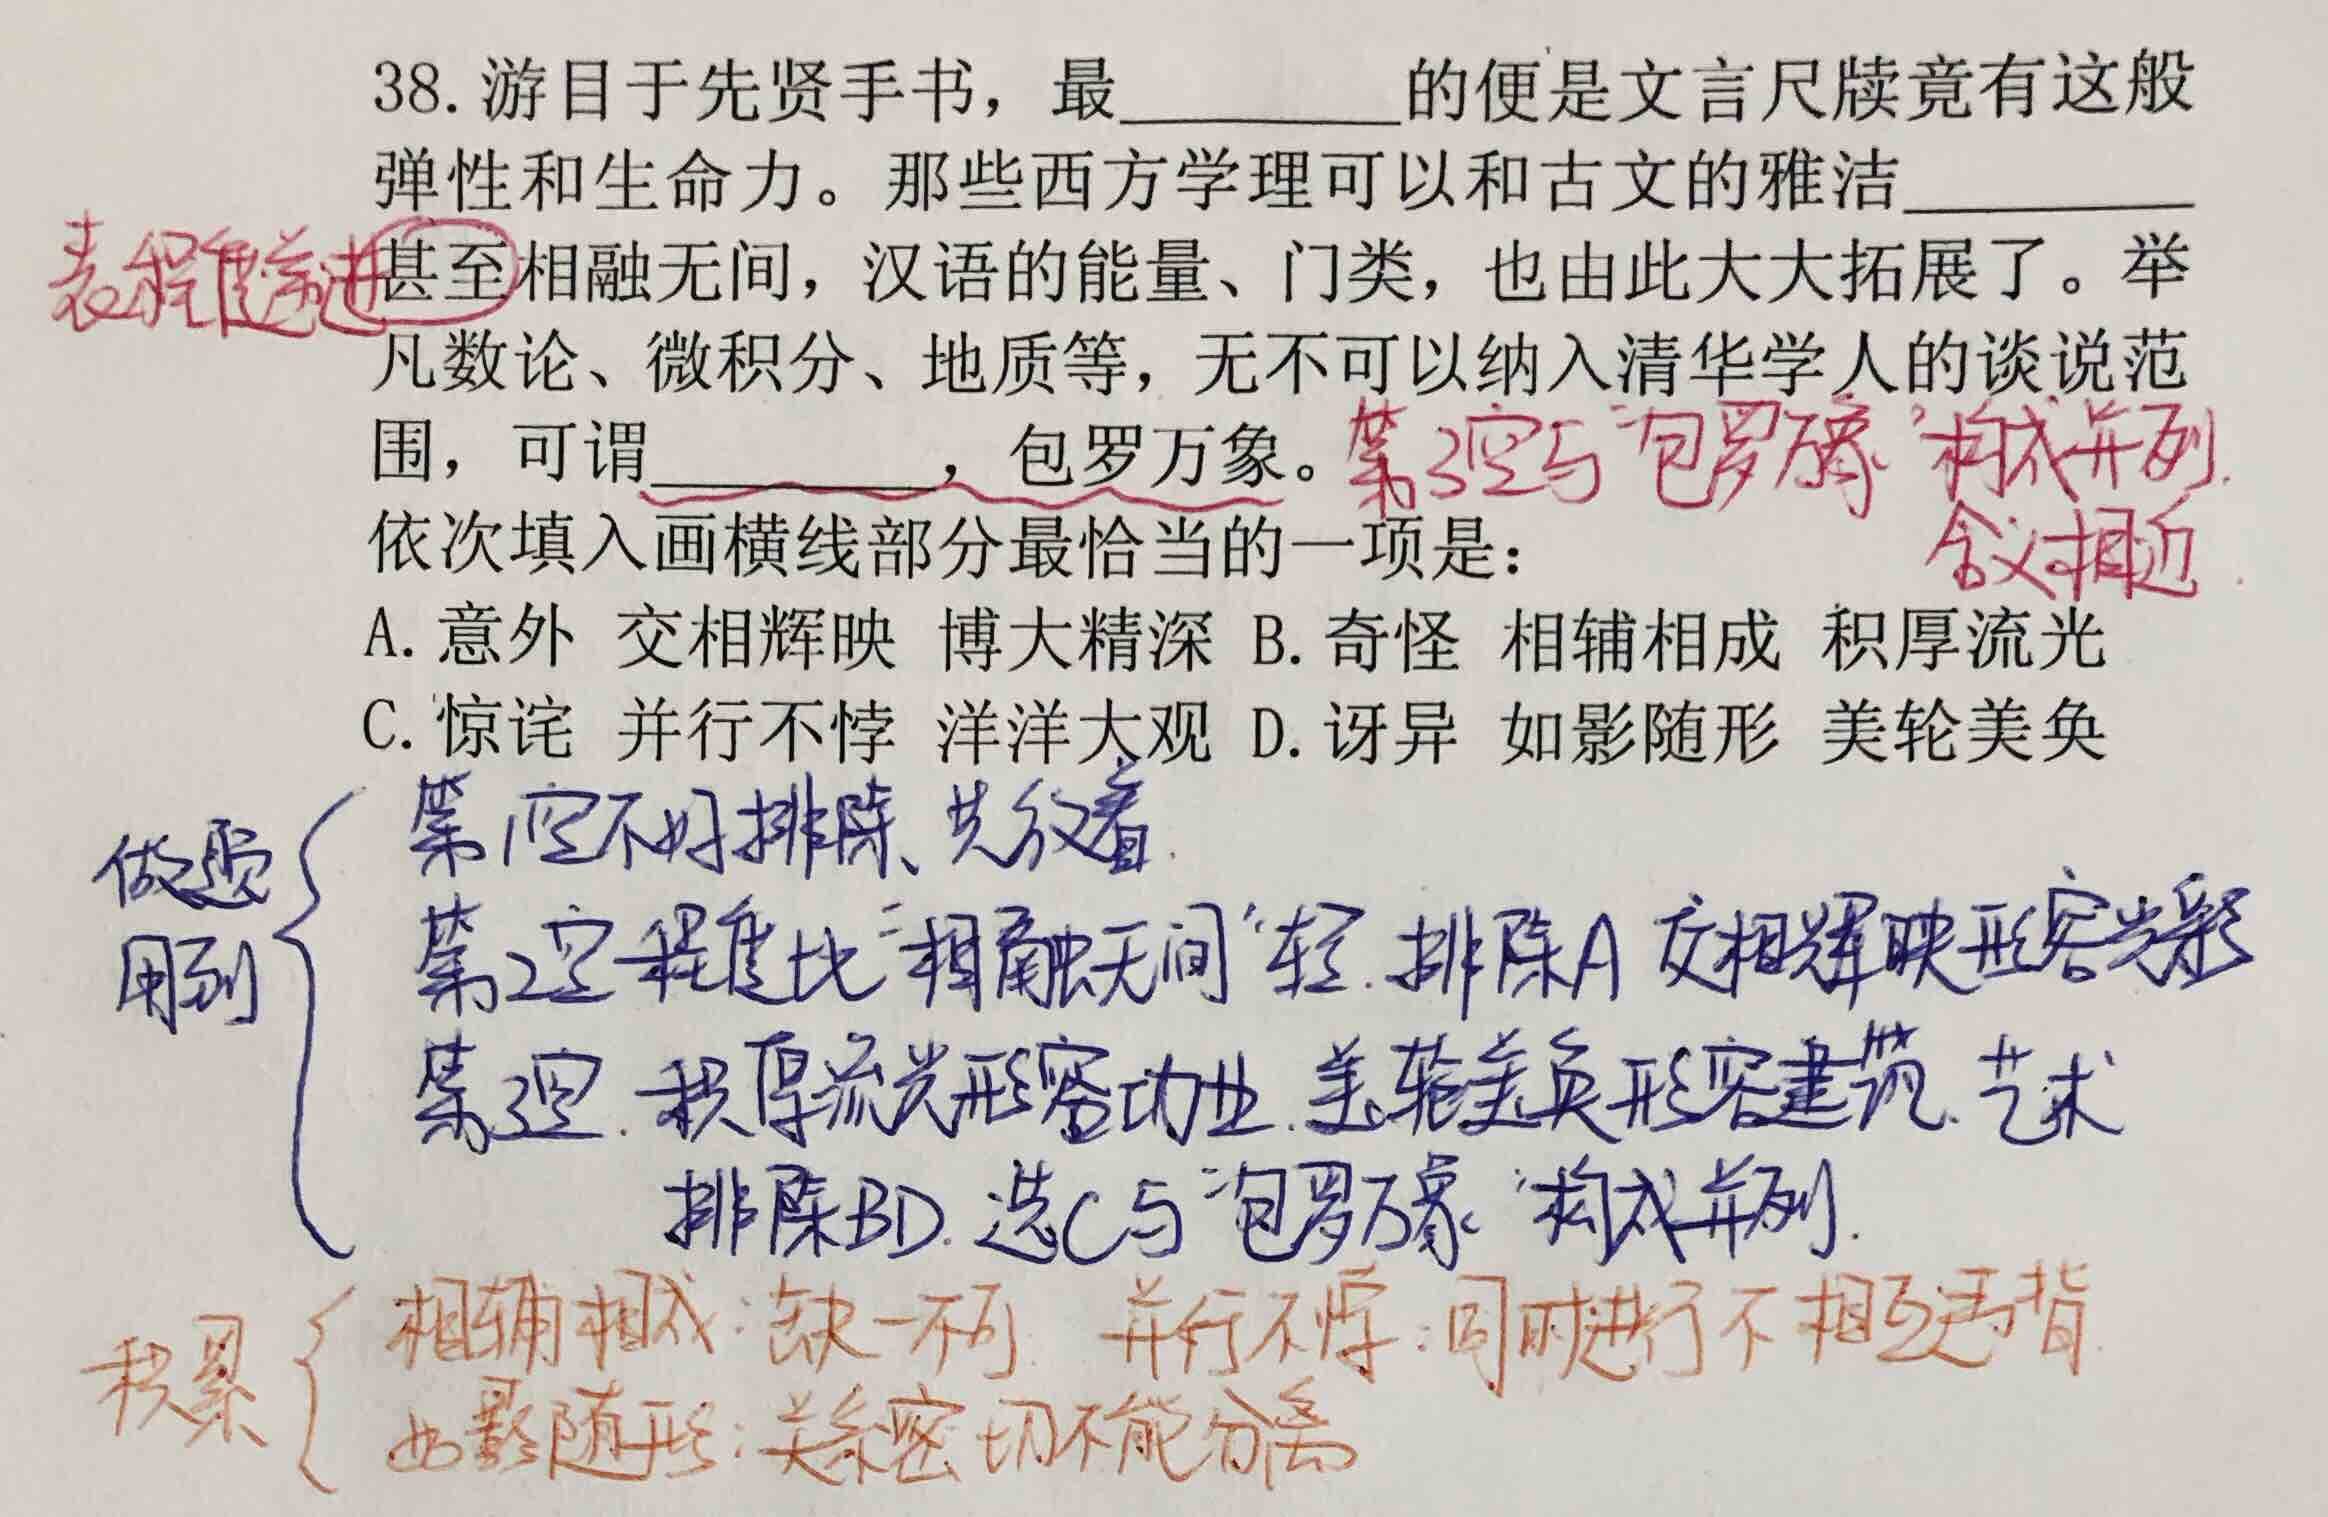 38.游目于先贤手书，最________的便是文言尺牍竟有这般
弹性和生命力。那些西方学理可以和古文的雅洁________
表程度递进
甚至相融无间，汉语的能量、门类，也由此大大拓展了。举
凡数论、微积分、地质等，无不可以纳入清华学人的谈说范
围，可谓________，包罗万象。
第3空与“包罗万象”构成并列.
含义相近.
依次填入画横线部分最恰当的一项是：
A.意外 交相辉映 博大精深 B.奇怪 相辅相成 积厚流光
C.惊诧 并行不悖 洋洋大观 D.讶异 如影随形 美轮美奂
做题
用到
第1空不好排除、先放着.
第2空程度比“相融无间”轻.排除A 交相辉映形容光彩
第3空.积厚流光形容功业.美轮美奂形容建筑.艺术
排除BD.选C与“包罗万象”构成并列.
积累
相辅相成:缺一不可. 并行不悖:同时进行不相互违背.
如影随形:关系密切不能分离